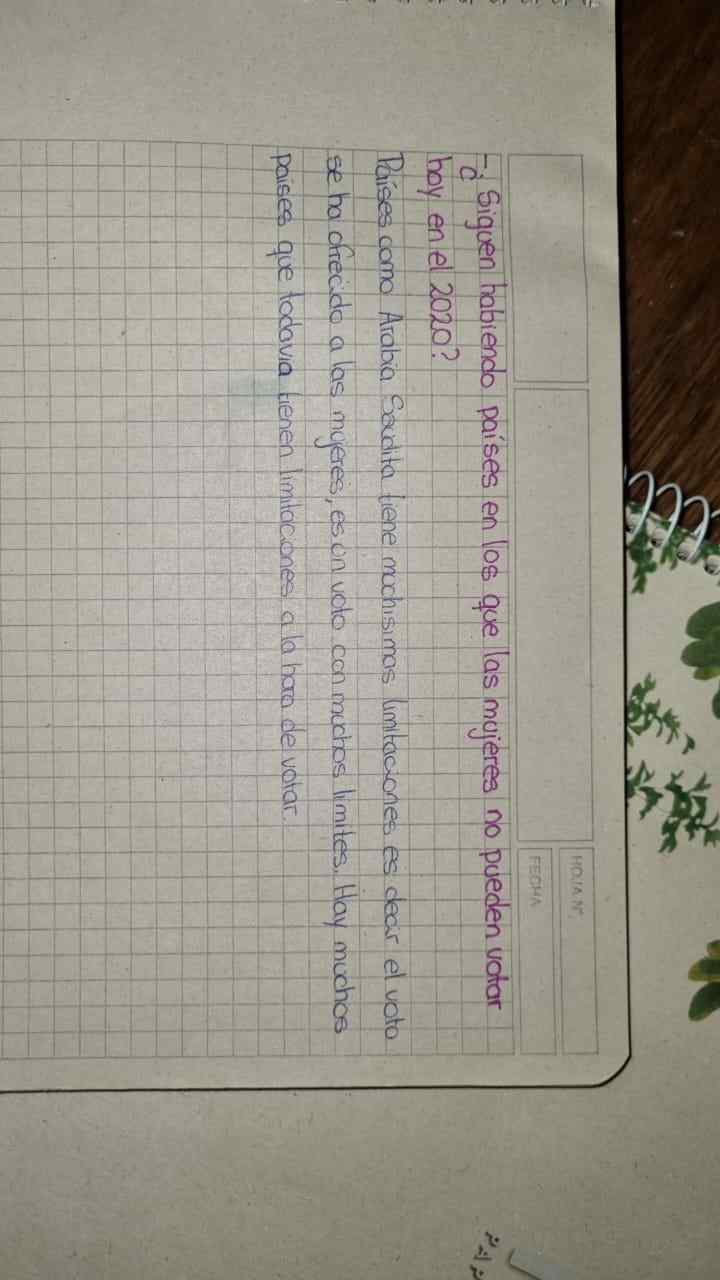 HOJA N°.
FECHA
-¿Siguen habiendo países en los que las mujeres no pueden votar
hoy en el 2020?
Países como Arabia Saudita tiene muchisimas limitaciones es decir el voto
se ha ofrecido a las mujeres, es un voto con muchos limites. Hay muchos
paises que todavia tienen limitaciones a la hora de votar.